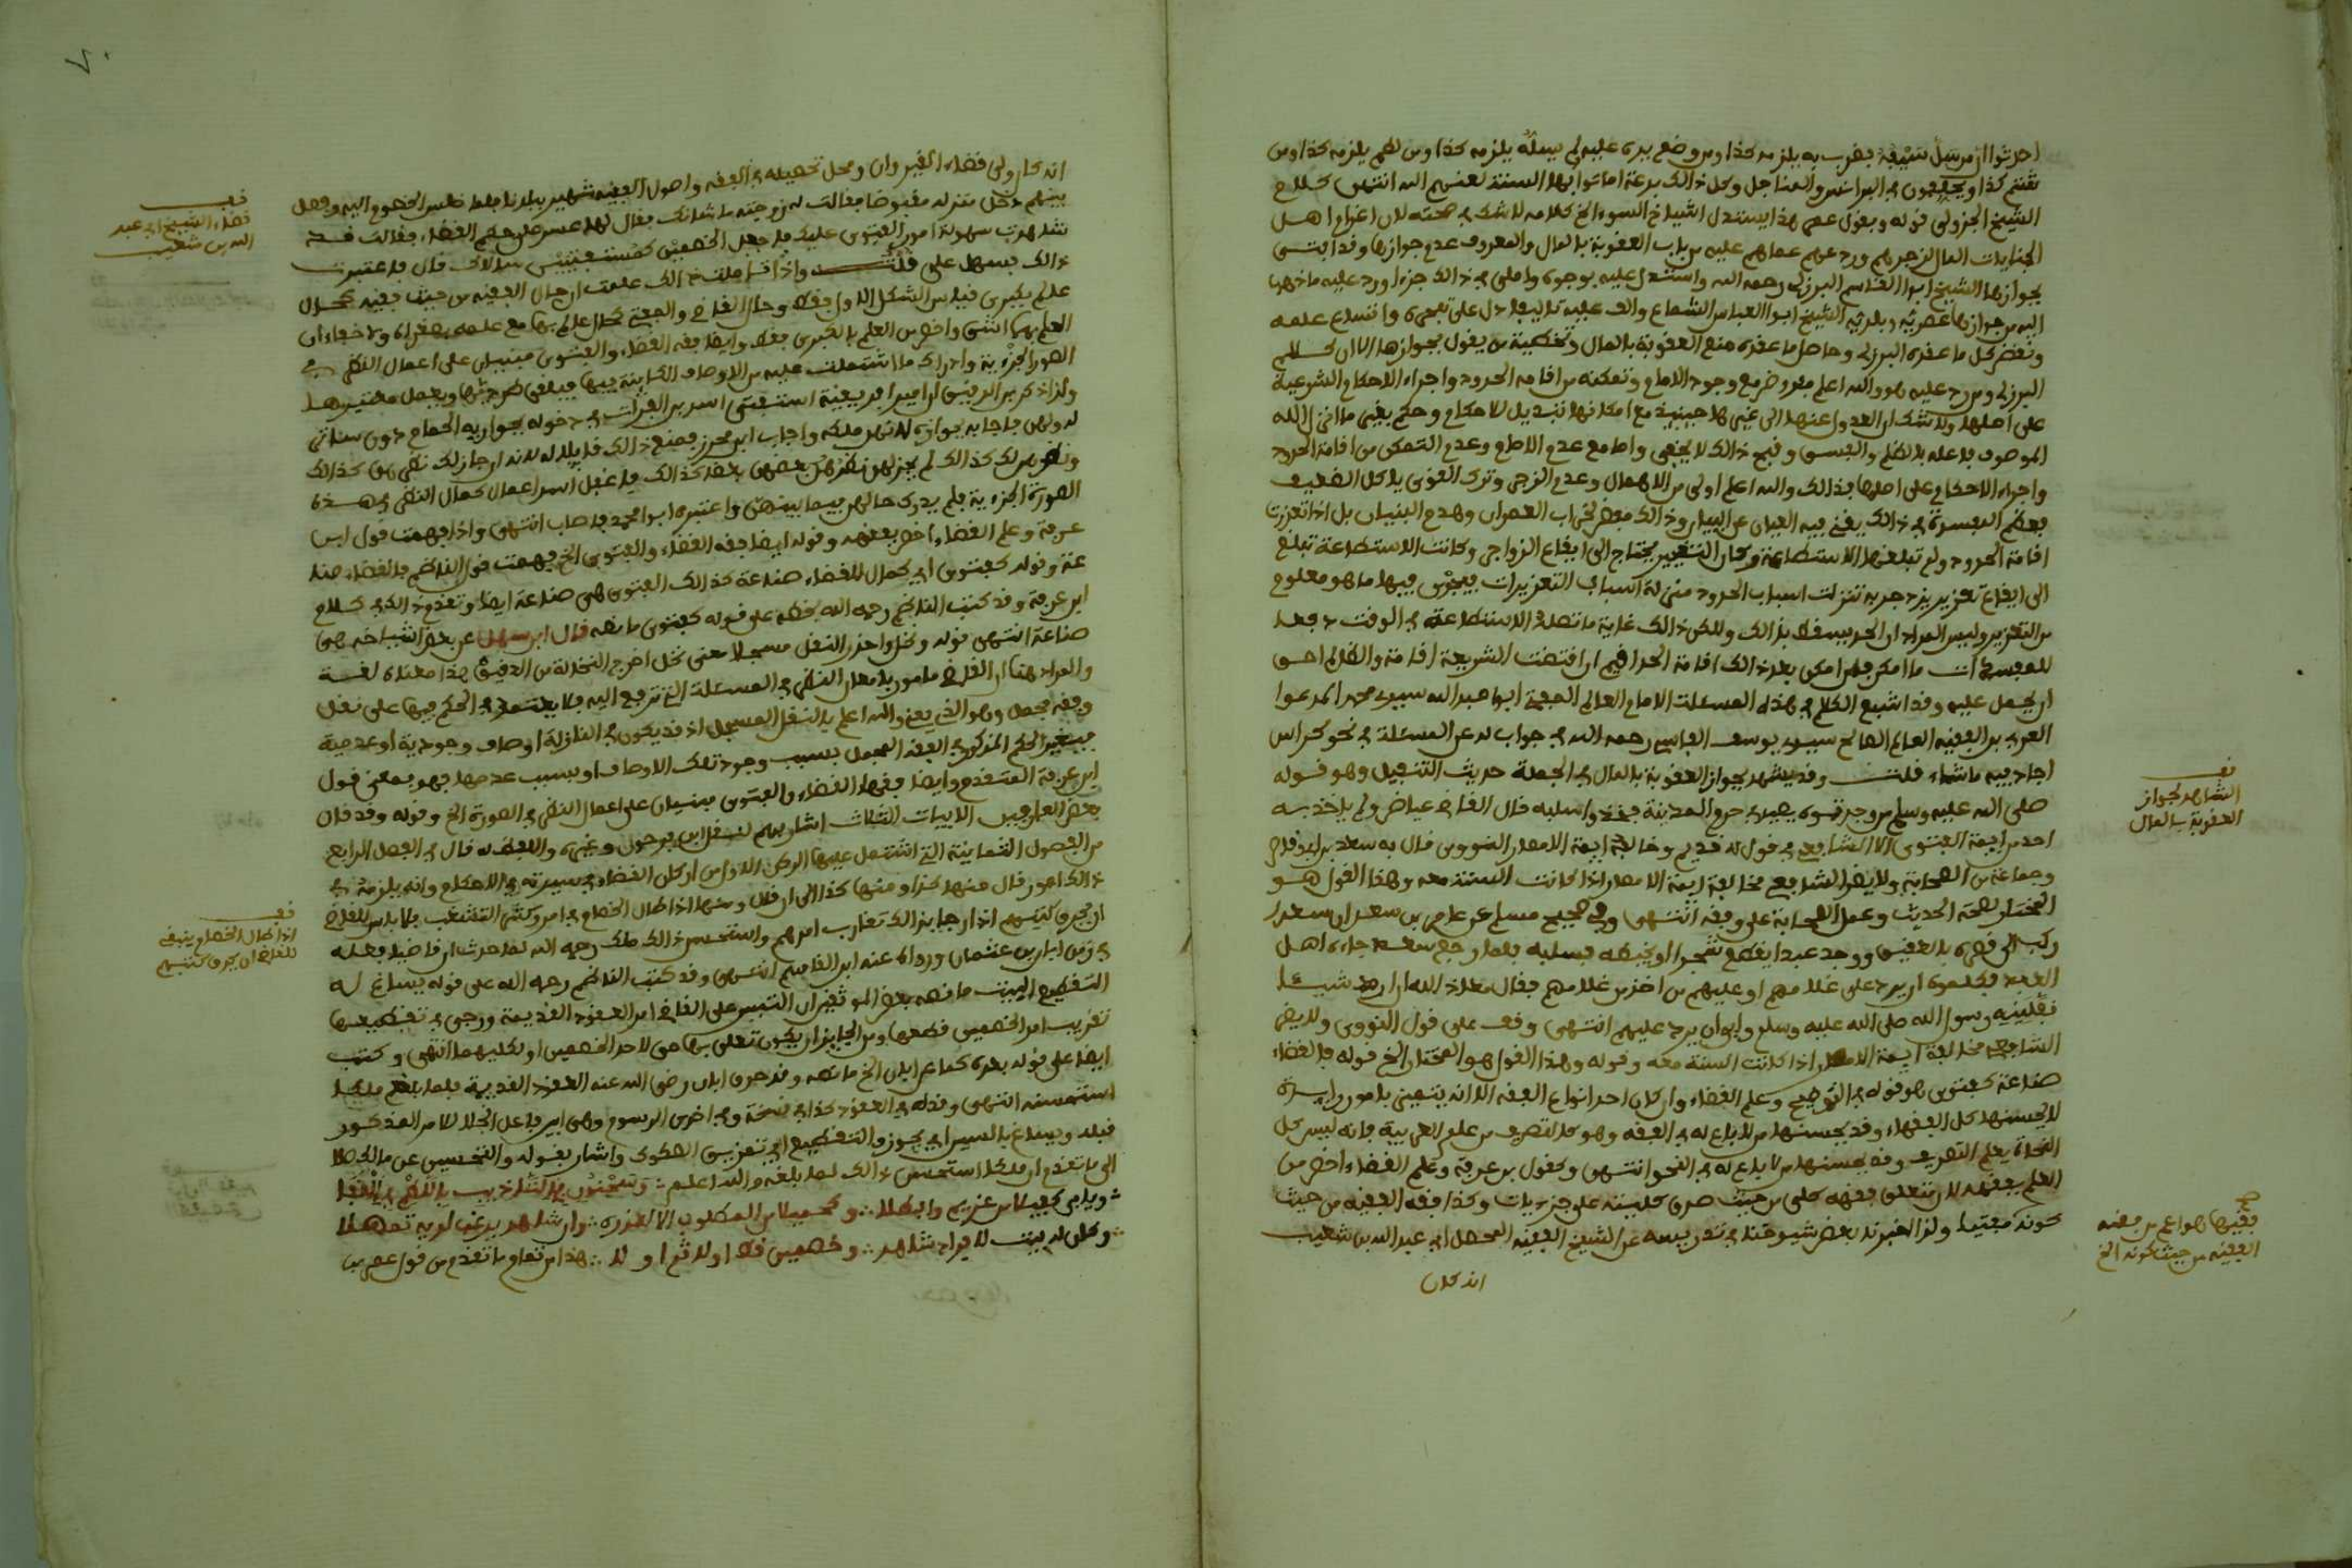 احدثوا ان من سل سيفه فضرب به يلزمه كذا ومن وضع يده عليه ولم يسله يلزمه كذا ومن لطم يلزمه كذا ومن
شتم كذا ويجعلون في البرانس والمناجل وكل ذالك بدعة اماتوا بها السنة لعنهم الله انتهى كلام
الشيخ الجزولي قوله وبقول عمر هذا يستدل اشياخ السوء الخ كلامه لا شك في صحته لان اغرام اهل
الجنايات المال لزجرهم وردعهم عما هم عليه من باب العقوبة بالمال والمعروف عدم جوازها وقد افتى
بجوازها الشيخ ابوا القاسم البرزلي رحمه الله واستدل عليه بوجوه واملى في ذالك جزءا ورد عليه ما ذهب
اليه من جوازها عصريه وبلديه الشيخ ابوا العباس الشماع والف عليه تاليفا دل على تبحره واتساع علمه
ونقض كل ما عقده البرزلي وحاصل ما عقده منع العقوبة بالمال وتخطية من يقول بجوازها الا ان كلام
البرزلي ومن رد عليه هو والله اعلم مفروض مع وجود الامام وتمكنه من اقامة الحدود واجراء الاحكام الشرعية
على اصلها ولا شك ان العدول عنها الى غيرها حينيذ مع امكانها تبديل للاحكام وحكم بغير ما انزل الله
الموصوف فاعله بالظلم والفسق وقبح ذالك لا يخفى واما مع عدم الامام وعدم التمكن من اقامة الحدود
واجراء الاحكام على اصلها فذالك والله اعلم اولى من الاهمال وعدم الزجر وترك القوي ياكل الضعيف
فعظم المفسدة في ذالك يغني فيه العيان عن البيان وذالك مفض لخراب العمران وهدم البنيان بل اذا تعذرت
اقامة الحدود ولم تبلغها الاستطاعة وكان التغيير يحتاج الى ايقاع الزواجر وكانت الاستطاعة تبلغ
الى ايقاع تعزير يزدجر به تنزلت اسباب الحدود منزلة اسباب التعزيرات فيجري فيها ما هو معلوم
من التعزير وليس المراد ان الحد يسقط بذالك ولكن ذالك غاية ما تصله الاستطاعة في الوقت دفعا
للمفسدة ما امكن فان امكن بعد ذالك اقامة الحد اقيم ان اقتضت الشريعة اقامة والظالم احق
ان يحمل عليه وقد اشبع الكلام في هذه المسئلة الامام العالم العلامة ابوا عبد الله سيدي محمد المدعوا
العربي بن الفقيه العالم الصالح سيدي يوسف الفاسي رحمه الله في جواب له عن المسئلة في نحو كراس
اجاد فيه ما شاء قلت وقد يشهد لجواز العقوبة بالمال في الجملة حديث التنفيل وهو قوله
صلى الله عليه وسلم من وجدتموه يصيد في حرم المدينة فخذوا سلبه قال القاضي عياض ولم ياخذ به
احد من ايمة الفتوى الا الشافعي في قول له قديم وخالفه ايمة الامصار النووي قال به سعد بن ابي وقاص
وجماعة من الصحابة ولا يضر الشافعي مخالفة ايمة الامصار اذا كانت السنة معه وهذا القول هو
المختار لصحة الحديث وعمل الصحابة على وفقه انتهى وفي صحيح مسلم عن عامر بن سعد ان سعدا
ركب الى قصره بالعقيق ووجد عبدا يقطع شجرا او يخبطه فسلبه فلما رجع سعد جاءه اهل
العبد فكلموه ان يرد على غلامهم او عليهم من اخذ من غلامهم فقال معاذ الله ان ارد شيئا
نفلنيه رسول الله صلى الله عليه وسلم وابى ان يرد عليهم انتهى وقف على قول النووي ولا يضر
الشافعي مخالفة ايمة الامصار اذا كانت السنة معه وقوله وهذا القول هو المختار الخ قوله فالقضاء
صناعة كفتوى هو قوله في التوضيح وعلم القضاء وان كان احد انواع الفقه الا انه يتميز بامور زايدة
لا يحسنها كل الفقهاء وقد يحسنها من لا باع له في الفقه وهو كالتصريف من علم العربية فانه ليس كل
النحاة يعلم التصريف وقد يحسنه من لا باع له في النحو انتهى وكقول بن عرفة وعلم القضاء اخص من
العلم بفقهه لان متعلق فقهه كلي من حيث صدق كليته على جزييات وكذا فقه الفقيه من حيث
كونه مفتيا ولذا اخبرنا بعض شيوخنا في تدريسه عن الشيخ الفقيه المحصل ابي عبد الله بن شعيب
انه كان
قف
الشاهد لجواز
العقوبة بالمال
صح
فقيها هو اعم من فقه
الفقيه من حيث كونه الخ
٧٠
انه كان ولي قضاء القيروان ومحل تحصيله في الفقه واصول الفقه شهير ببلدنا فلما جلس الخصوم اليه وفصل
بينهم دخل منزله مقبوضا فقالت له زوجته ما شانك فقال لها عسر علي حكم القضاء فقالت قد
شاهدت سهولة امور الفتوى عليك فاجعل الخصمين كمستفتيين سالاك قال فاعتبرت
ذالك فسهل علي قلت واذا تاملت ذالك علمت ان حال الفقيه من حيث فقيه كحال
عالم بكبرى قياس الشكل الاول فقط وحال القاضي والمفتي كحال عالم بها مع علمه بصغراه ولا خفاء ان
العلم بهما اشق واخص من العلم بالكبرى فقط وايضا فقه القضاء والفتوى مبنيان على اعمال النظر في
الصور الجزئية وادراك ما اشتملت عليه من الاوصاف الكاينة فيها فيلغى طرديها ويعمل معتبرها
ولذا ذكر بن الرقيق ان امير افريقية استفتى اسد بن الفرات في دخوله بجواريه الحمام دون ساتر
له ولهن فاجابه بجوازه لانهن ملكه واجاب ابن محرز بمنع ذالك قايلا له لانه ان جاز لك نظرهن كذالك
ونظرهن لك كذالك لم يجز لهن نظرهن بعضهن بعضا كذالك فاغفل اسد اعمال كمال النظر في هذه
الصورة الجزئية فلم يدرك حالهن فيما بينهن واعتبره ابوا محمد فاصاب انتهى واذا فهمت قول ابن
عرفة وعلم القضاء اخص بفقهه وقوله ايضا فقه القضاء والفتوى الخ فهمت قول الناظم فالقضاء صنا
عة وقوله كفتوى اي كحال للقضاء صناعة كذالك الفتوى هي صناعة ايضا وتقدم ذالك في كلام
ابن عرفة وقد كتب الناظم رحمه الله بخطه على قوله كفتوى ما نصه قال ابن سهل عن بعض اشياخه هي
صناعة انتهى قوله ونخل واحذر النقل مسجلا معنى نخل اخرج النخالة من الدقيق هذا معناه لغة
والمراد هنا ان القاضي مامور بامعان النظر في المسئلة التي ترفع اليه فلا يعتمد في الحكم فيها على نقل
وفقه مجمل وهو الذي يعني والله اعلم بالنقل المسجل اذ قد يكون في النازلة اوصاف وجودية او عدمية
فيتغير الحكم المذكور في الفقه المجمل بسبب وجود تلك الاوصاف او بسبب عدمها فهو بمعنى قول
ابن عرفة المتقدم وايضا فقها القضاء والفتوى مبنيان على اعمال النظر في الصورة الخ وقوله وقد قال
بعض العارفين الابيات الثلاث اشار بهم لنقل ابن فرحون وغيره واللفظ له قال في الفصل الرابع
من الفصول الثمانية التي اشتمل عليها الركن الاول من اركان القضاء في سيرته في الاحكام وانه يلزمه في
ذالك امور قال منها كذا ومنها كذا الى ان قال ومنها اذا طال الخصام في امر وكثر التشغيب فلا باس للقاضي
ان يحرق كتبهم اذا رجا بذالك تقارب امرهم واستحسن ذالك ملك رحمه الله لما حدث ان قاضيا فعله
في زمن ابان بن عثمان ورواه عنه ابن القاسم انتهى وقد كتب الناظم رحمه الله على قوله يساغ له
التقطيع البيت ما نصه بعض الموثقين ان التبس على القاضي امر العقود القديمة ورجى في تقطيعها
تقريب امر الخصمين قطعها ومن الجايز ان يكون تعلق بها حق لاحد الخصمين او لكليهما انتهى وكتب
ايضا على قوله بعده كما عن ابان الخ ما نصه وقد حرق ابان رضي الله عنه العقود القديمة فلما بلغ ملكا
استحسنه انتهى وقوله في العقود كذا في نسخة وفي اخرى الرسوم وهي ابين فاعل انجلا للامر المذكور
قبله ويساغ بالسين اي يجوز والتقطيع اي تمزيق الصكوك واشار بقوله والتحسين عن ملك جلا
الى ما تقدم ان ملكا استحسن ذالك لما بلغه والله اعلم
وكل له بيت لايراد شاهد وخصمين قط اولا ثم اولا هذا من تمام ما تقدم من قول عمر بن
قف
قضاء الشيخ ابي عبد
الله بن شعيب
قف
اذا طال الخصام ينبغي
للقاضي ان يحرق كتبهم